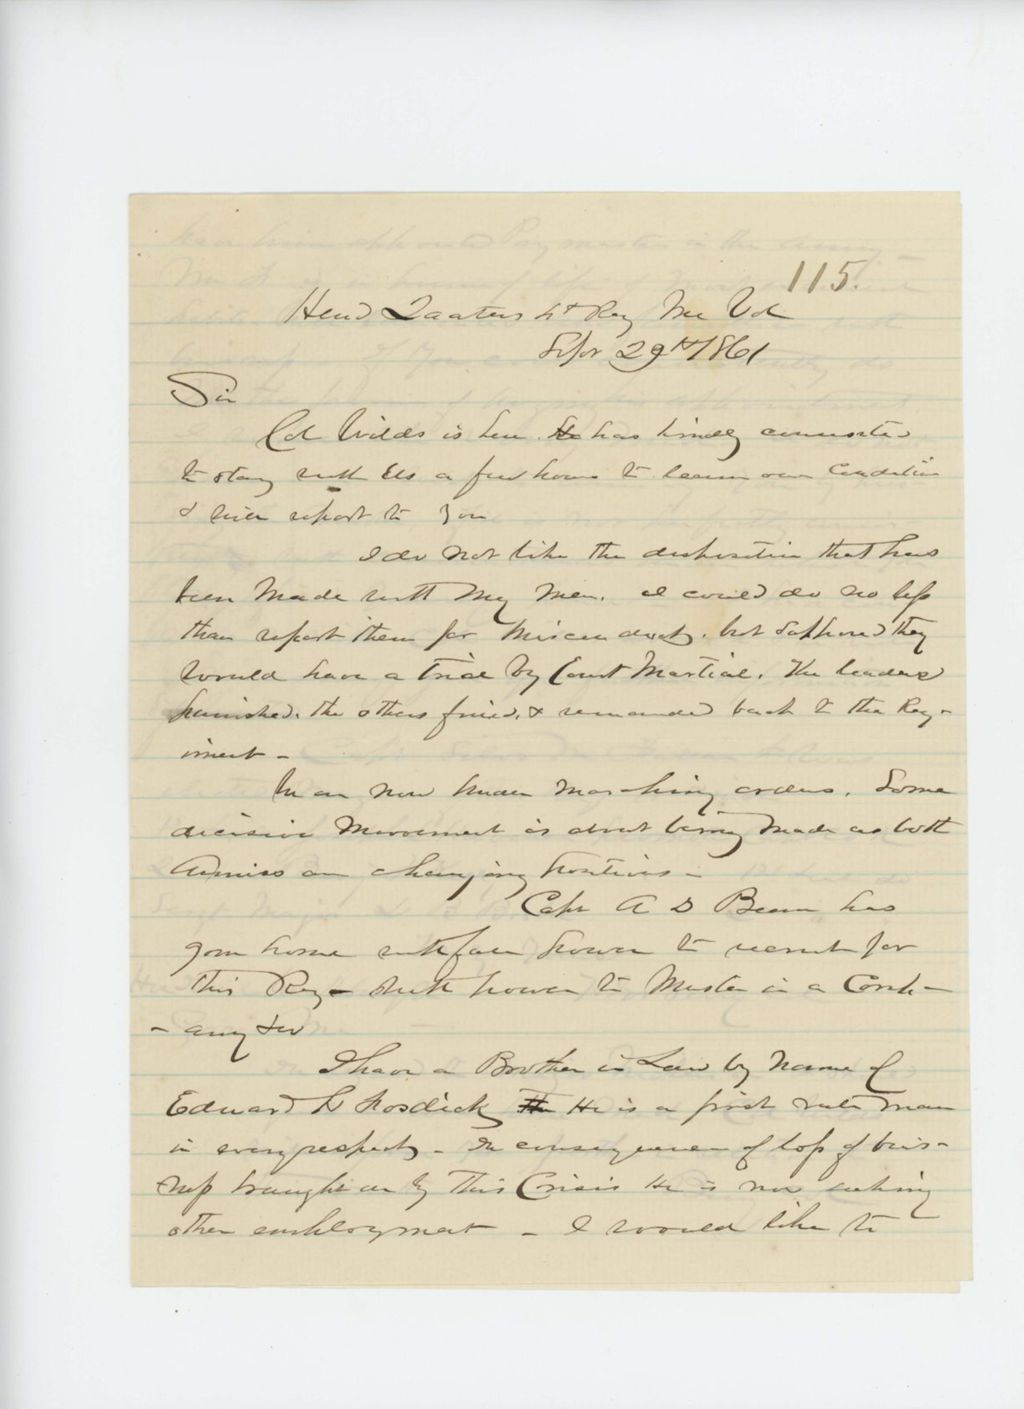 115.
Head Quarters 4t Reg Me Vol
Sept 29th 1861
Sir
Col Wilds is here. He has kindly consented
to stay with us a few hours to learn our condition
& will report to you
I do not like the disposition that has
been made with my men. I could do no less
than report them for misconduct, but supposed they
would have a trial by Court Martial, the leaders
punished, the others fined, & remanded back to the Reg-
iment -
We are now under marching orders. Some
decisive movement is about being made as both
Armies are changing positions -
Capt A D Bean has
gone home with full power to recruit for
this Reg - with power to Muster in a Comp-
- any &c
I have a Brother in Law by name of
Edward L Fosdick He is a first rate man
in every respect - In consequence of loss of busi-
ness brought on by this Crisis He is now seeking
other employment - I would like to